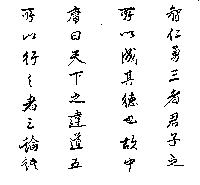 智仁勇三者君子之
所以成其德也故中
庸曰天下之達道五
所以行之者三論語